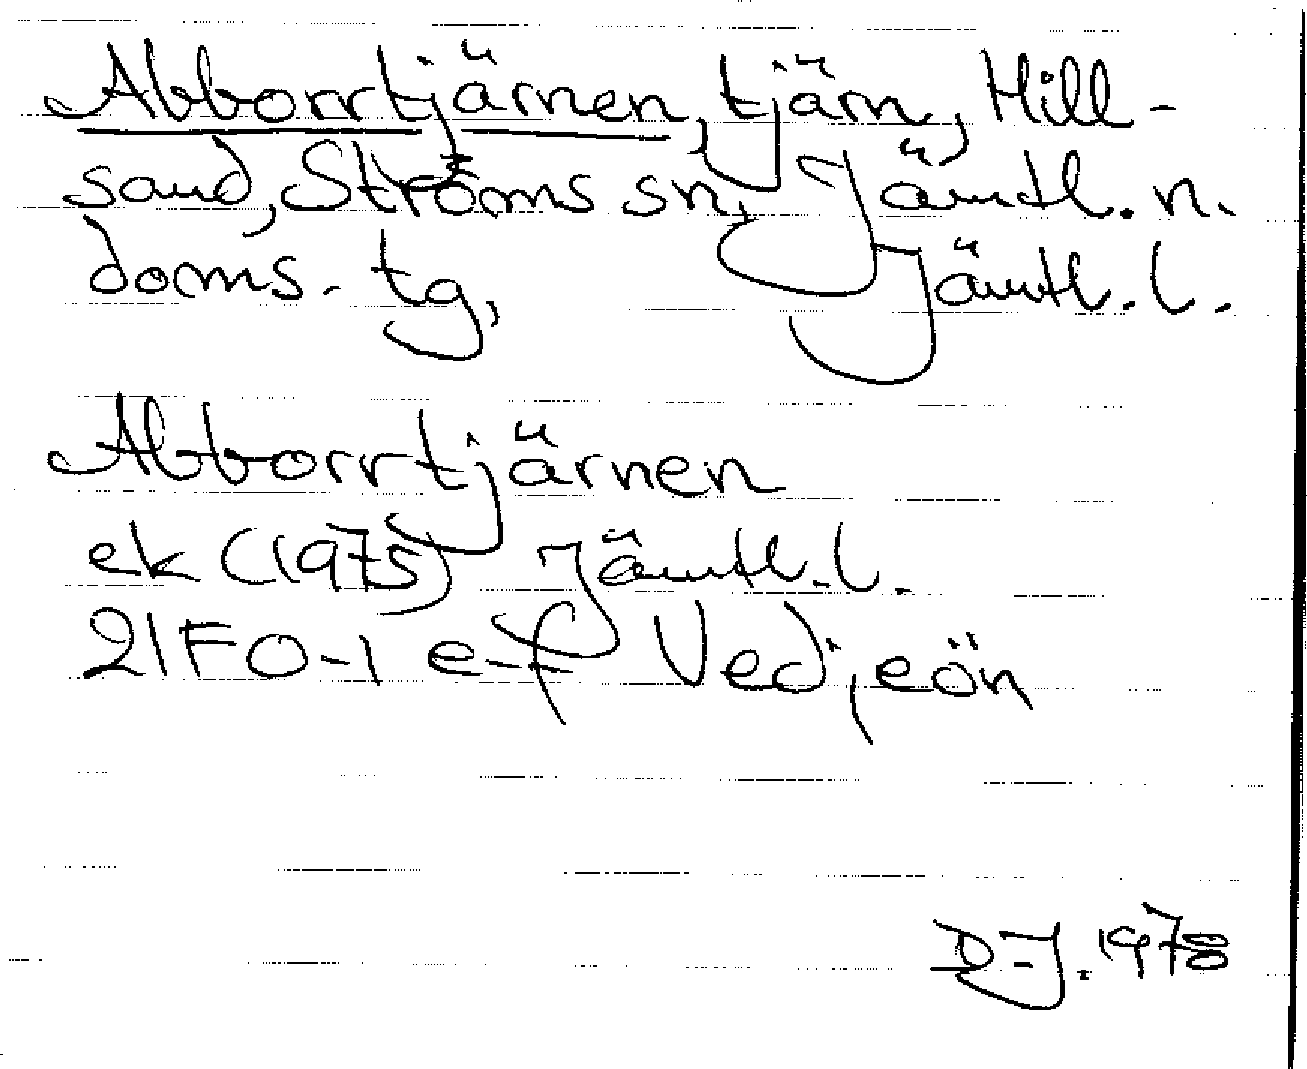 Abborrtjärnen, tjärn, Hill-
sand, Ströms sn, Jämtl. n.
doms. tg, Jämtl. l.
Abborrtjärnen
ek (1975) Jämtl. l.
21F0-1 e-f Vedjeön
D-J. 1978